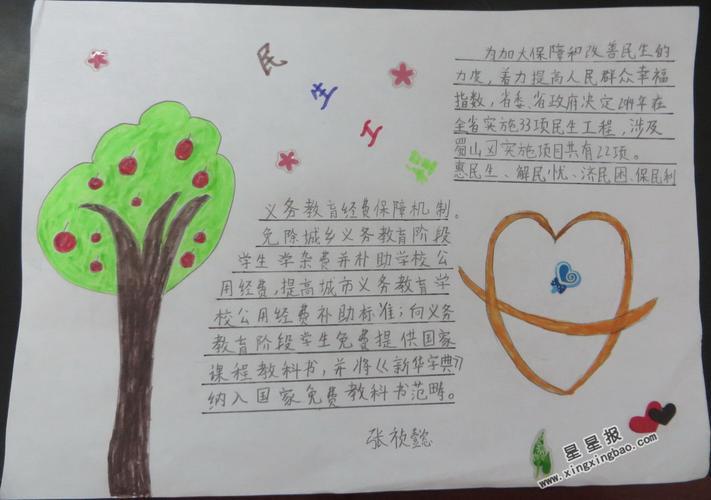 民生工程
为加大保障和改善民生的
力度，着力提高人民群众幸福
指数，省委、省政府决定2014年在
全省实施33项民生工程，涉及
蜀山区实施项目共有22项。
惠民生、解民忧、济民困、保民利
义务教育经费保障机制。
免除城乡义务教育阶段
学生学杂费并补助学校公
用经费，提高城市义务教育学
校公用经费补助标准；向义务
教育阶段学生免费提供国家
课程教科书，并将《新华字典》
纳入国家免费教科书范畴。
张祯懿
星星报
www.xingxingbao.com